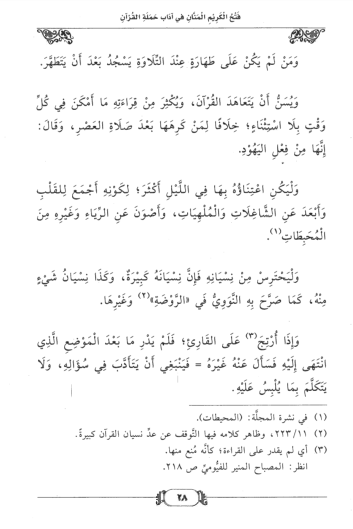 فَتْحُ الْكَرِيْمِ الْمَنَّانِ فِي آدَابِ حَمَلَةِ الْقُرْآنِ
وَمَنْ لَمْ يَكُنْ عَلَى طَهَارَةٍ عِنْدَ التِّلَاوَةِ يَسْجُدُ بَعْدَ أَنْ يَتَطَهَّرَ.
وَيُسَنُّ أَنْ يَتَعَاهَدَ الْقُرْآنَ، وَيُكْثِرَ مِنْ قِرَاءَتِهِ مَا أَمْكَنَ فِي كُلِّ
وَقْتٍ بِلَا اسْتِثْنَاءٍ؛ خِلَافًا لِمَنْ كَرِهَهَا بَعْدَ صَلَاةِ الْعَصْرِ، وَقَالَ:
إِنَّهَا مِنْ فِعْلِ الْيَهُودِ.
وَلْيَكُنِ اعْتِنَاؤُهُ بِهَا فِي اللَّيْلِ أَكْثَرَ؛ لِكَوْنِهِ أَجْمَعَ لِلْقَلْبِ
وَأَبْعَدَ عَنِ الشَّاغِلَاتِ وَالْمُلْهِيَاتِ، وَأَصْوَنَ عَنِ الرِّيَاءِ وَغَيْرِهِ مِنَ
الْمُحْبِطَاتِ(١).
وَلْيَحْتَرِسْ مِنْ نِسْيَانِهِ فَإِنَّ نِسْيَانَهُ كَبِيْرَةٌ، وَكَذَا نِسْيَانُ شَيْءٍ
مِنْهُ، كَمَا صَرَّحَ بِهِ النَّوَوِيُّ فِي «الرَّوْضَةِ»(٢) وَغَيْرِهَا.
وَإِذَا أُرْتِجَ(٣) عَلَى الْقَارِئِ؛ فَلَمْ يَدْرِ مَا بَعْدَ الْمَوْضِعِ الَّذِي
انْتَهَى إِلَيْهِ فَسَأَلَ عَنْهُ غَيْرَهُ = فَيَنْبَغِي أَنْ يَتَأَدَّبَ فِي سُؤَالِهِ، وَلَا
يَتَكَلَّمَ بِمَا يُلْبِسُ عَلَيْهِ.
(١) في نشرة المجلَّة: (المحيطات).
(٢) ٢٢٣/١١، وظاهر كلامه فيها التَّوقف عن عدِّ نسيان القرآن كبيرةً.
(٣) أي لم يقدر على القراءة؛ كأنَّه مُنع منها.
انظر: المصباح المنير للفيُّومي ص ٢١٨.
٢٨